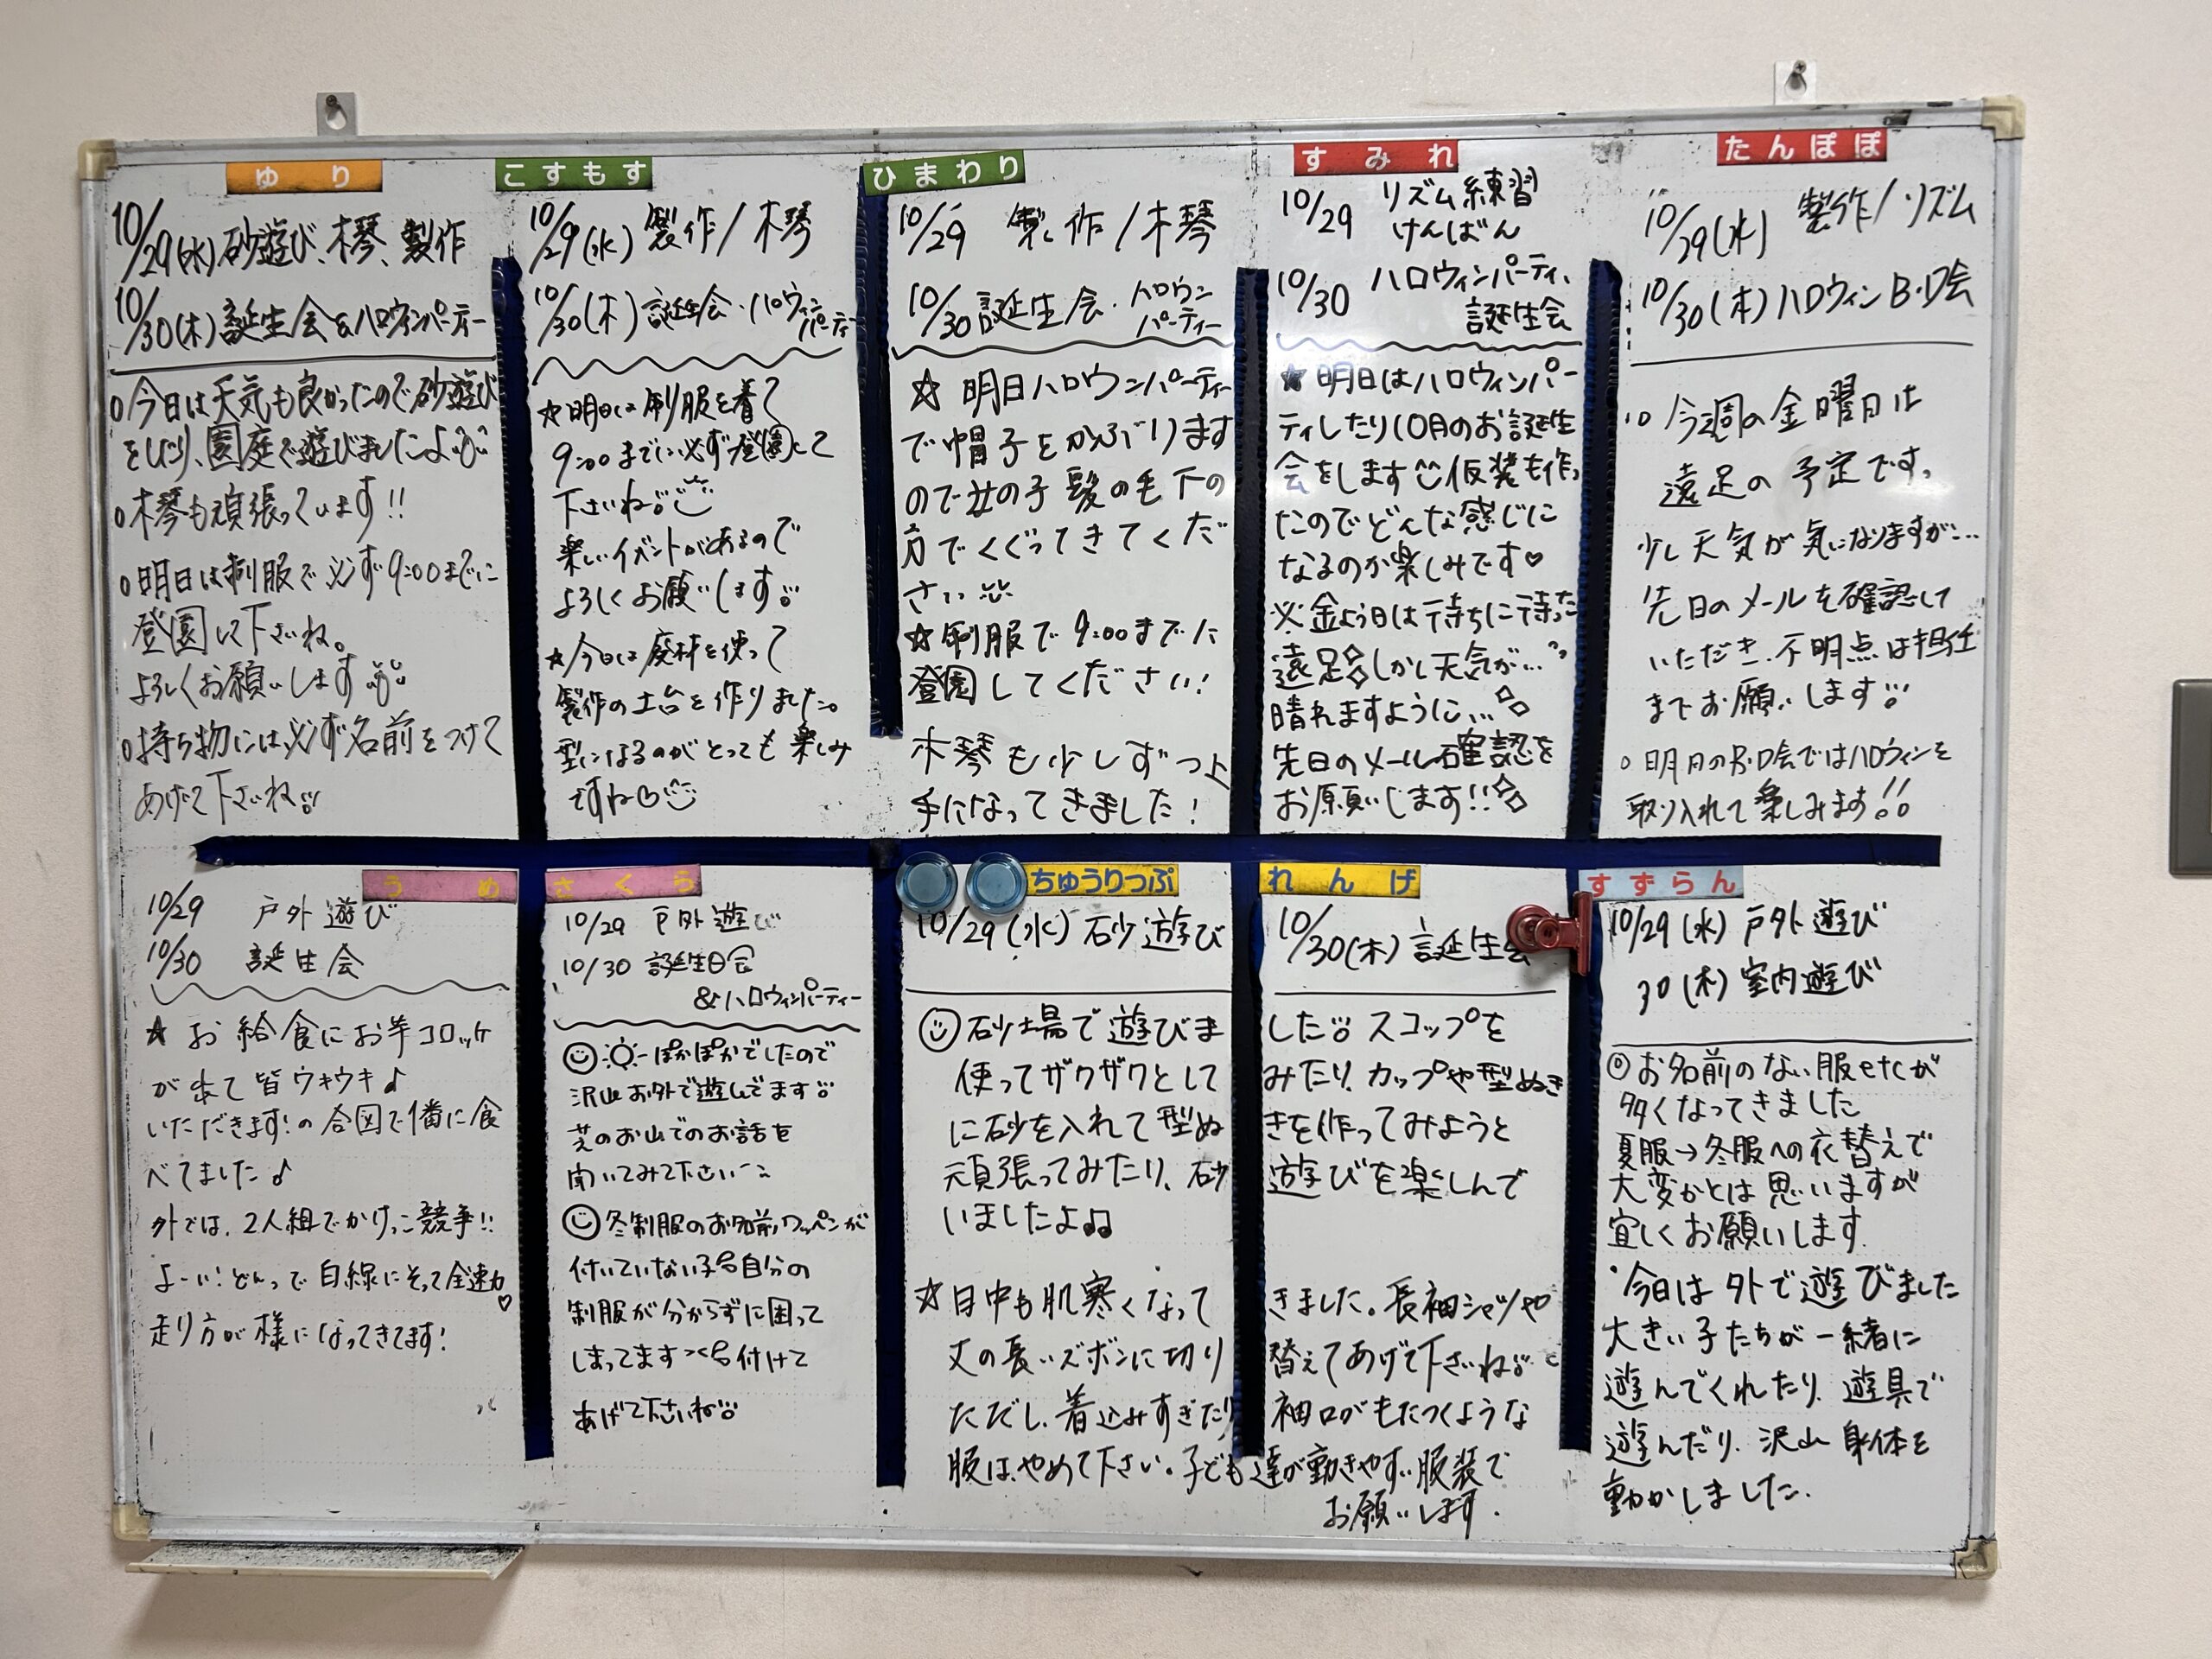 ゆり
10/29(水) 砂遊び、木琴、製作
10/30(木) 誕生会&ハロウィンパーティー
○今日は天気も良かったので砂遊び
をしたり、園庭で遊びましたよ
○木琴も頑張っています!!
○明日は制服で必ず9:00までに
登園して下さいね。
よろしくお願いします
○持ち物には必ず名前をつけて
あげて下さいね
こすもす
10/29(水) 製作/木琴
10/30(木) 誕生会・ハロウィン
パーティー
☆明日は制服を着て
9:00までに必ず登園して
下さいね
楽しいイベントがあるので
よろしくお願いします
☆今日は廃材を使って
製作の土台を作りました。
型になるのがとっても楽しみ
ですね♡
ひまわり
10/29 製作/木琴
10/30 誕生会・ハロウン
パーティー
☆明日ハロウンパーティー
で帽子をかぶります
ので女の子髪の毛下の
方でくくってきてくだ
さい
☆制服で9:00までに
登園してください!
木琴も少しずつ上
手になってきました!
すみれ
10/29 リズム練習
けんばん
10/30 ハロウィンパーティ、
誕生会
★明日はハロウィンパー
ティしたり10月のお誕生
会をします 仮装も作っ
たのでどんな感じに
なるのか楽しみです♡
※金よう日は待ちに待った
遠足 しかし天気が…
晴れますように…
先日のメール確認を
お願いします!!
たんぽぽ
10/29(水) 製作/リズム
10/30(木) ハロウィンB・D会
○今週の金曜日は
遠足の予定です。
少し天気が気になりますが…
先日のメールを確認して
いただき、不明点は担任
までお願いします
○明日のB・D会ではハロウィンを
取り入れて楽しみます!!
うめ
10/29 戸外遊び
10/30 誕生会
★お給食にお芋コロッケ
が出て皆ウキウキ♪
いただきます!の合図で1番に食
べてました♪
外では、2人組でかけっこ競争!!
よーい!どんっで白線にそって全速力♡
走り方が様になってきてます!
さくら
10/29 戸外遊び
10/30 誕生日会
&ハロウィンパーティー
ぽかぽかでしたので
沢山お外で遊んでます
芝のお山でのお話を
聞いてみて下さい
冬制服のお名前ワッペンが
付いていない子も自分の
制服が分からずに困って
しまってます 付けて
あげて下さいね
ちゅうりっぷ れんげ
10/29(水) 砂遊び 10/30(木) 誕生会
砂場で遊びました スコップを
使ってザクザクとしてみたり、カップや型ぬき
に砂を入れて型ぬきを作ってみようと
頑張ってみたり、砂遊びを楽しんで
いましたよ♫
☆日中も肌寒くなってきました。長袖シャツや
丈の長いズボンに切り替えてあげて下さいね
ただし、着込みすぎたり袖口がもたつくような
服は、やめて下さい。子ども達が動きやすい服装で
お願いします.
すずらん
10/29(水) 戸外遊び
30(木) 室内遊び
◎お名前のない服etcが
多くなってきました
夏服→冬服への衣替えで
大変かとは思いますが
宜しくお願いします.
・今日は外で遊びました
大きい子たちが一緒に
遊んでくれたり、遊具で
遊んだり、沢山身体を
動かしました.